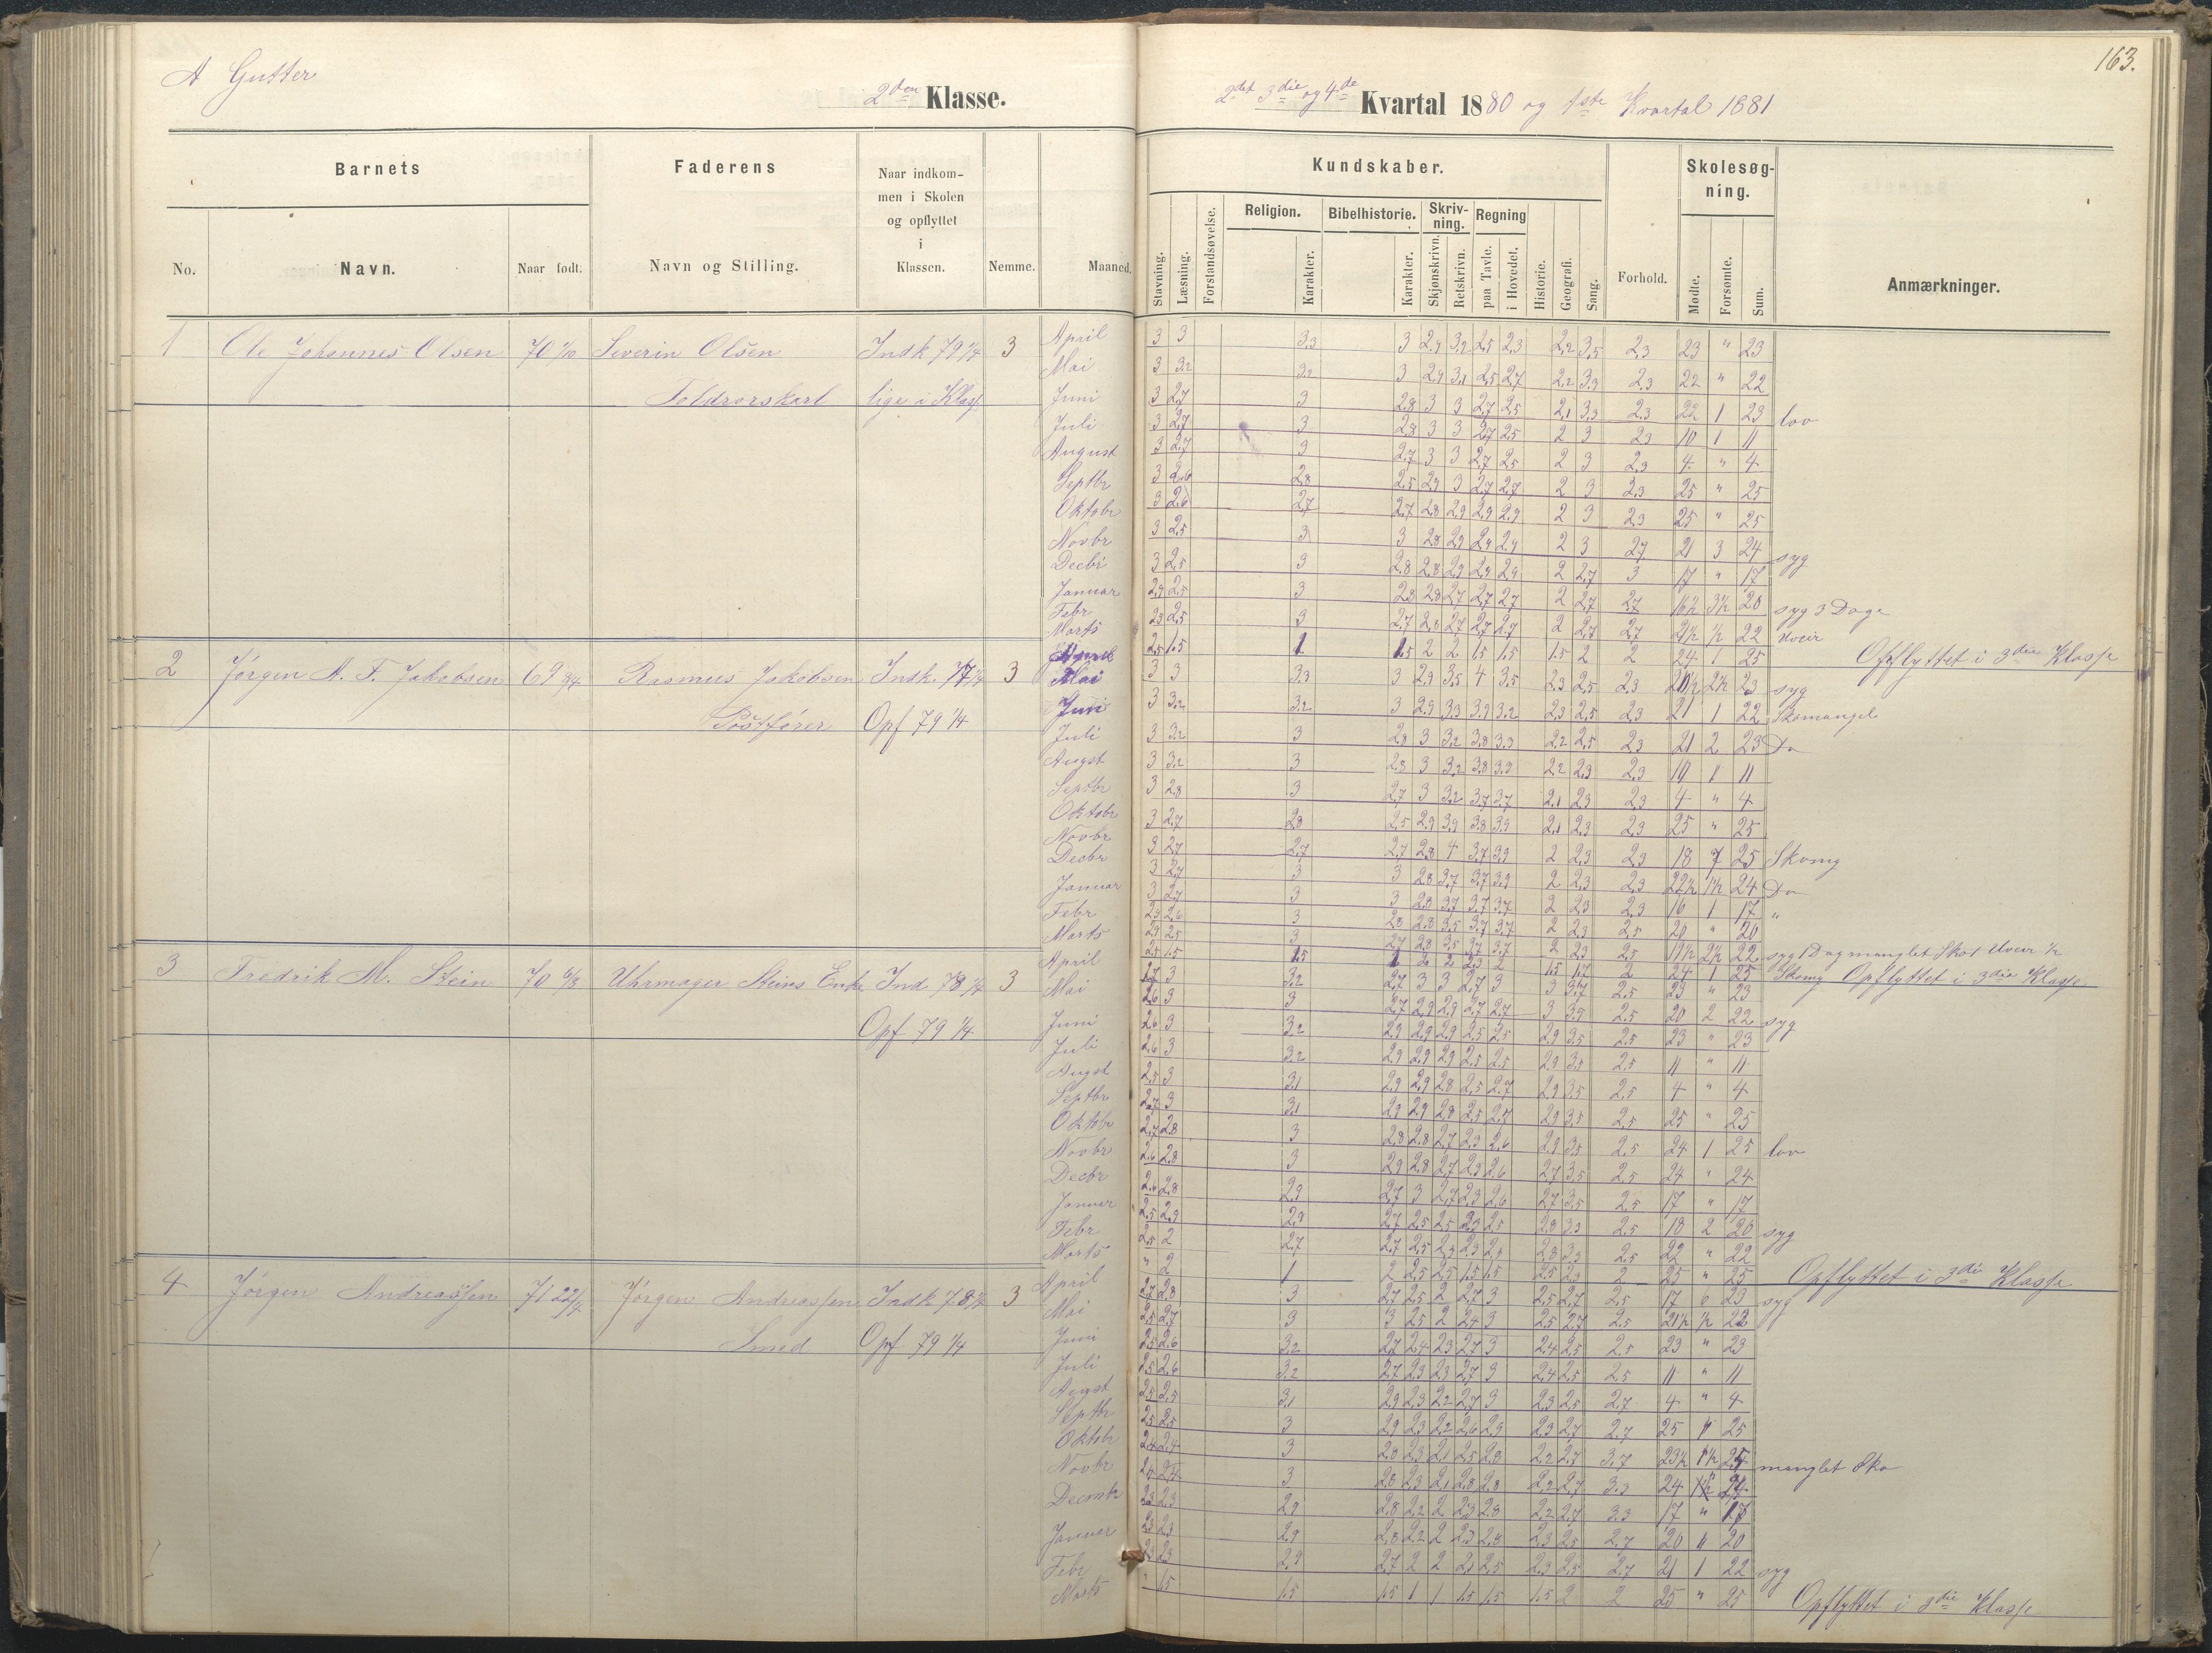 163.
A Gutter
2den Klasse.
2det 3die og 4de Kvartal 1880 og 1ste Kvartal 1881
Barnets
Faderens
Naar indkom-
men i Skolen
og opflyttet
i
Klassen.
No.
Navn.
Naar født.
Navn og Stilling.
Nemme.
Maaned.
Kundskaber.
Skolesøg-
ning.
Stavning.
Læsning.
Forstandsøvelse.
Religion.
Karakter.
Bibelhistorie.
Karakter.
Skriv-
ning.
Skjønskrivn.
Retskrivn.
Regning
paa Tavle.
i Hovedet.
Historie.
Geografi.
Sang.
Forhold.
Mødte.
Forsømte.
Sum.
Anmærkninger.
1 Ole Johannes Olsen 70 1/10 Severin Olsen Indk 79 1/4 3
Toldrorskarl lige i Klass.
April 3 3 3.3 3 2.9 3.2 2.5 2.3 2.2 3.5 2.3 23 " 23
Mai 3 3.2 3.2 3 2.9 3.1 2.5 2.7 2.2 3.3 2.3 22 " 22
Juni 3 2.7 3 2.8 3 3 2.7 2.5 2.1 3.3 2.3 22 1 23 lov
Juli 3 2.7 3 2.8 3 3 2.7 2.5 2 3 2.3 10 1 11
August 3 2.7 3 2.7 3 3 2.7 2.5 2 3 2.3 4 " 4
Septbr 3 2.6 2.8 2.5 2.9 3 2.7 2.7 2 3 2.3 25 " 25
Oktobr 3 2.6 2.7 2.7 2.8 2.9 2.9 2.9 2 3 2.3 25 " 25
Novbr 3 2.5 3 3 2.8 2.9 2.9 2.9 2 3 2.7 21 3 24 syg
Decbr 3 2.5 3 2.8 2.8 2.9 2.9 2.9 2 2.7 3 17 " 17
Januar 2.9 2.5 3 2.8 2.8 2.7 2.7 2.7 2 2.7 2.7 16½ 3½ 20 syg 3 Dage
Febr 2.9 2.5 3 2.7 2.8 2.7 2.7 2.7 2 2.7 2.7 21½ ½ 22 Uveir
Marts 2.5 1.5 1 1.5 2 2 1.5 1.5 1.5 2 2 24 1 25 Opflyttet i 3die Klasse
2 Jørgen A. F. Jakobsen 69 3/4 Rasmus Jakobsen Indk. 77 1/4 3
Postfører Opf 79 1/4
Mai 3 3 3.3 3 2.9 3.5 4 3.5 2.3 2.5 2.3 20½ 2½ 23 syg
Juni 3 3.2 3.2 3 2.9 3.3 3.9 3.2 2.3 2.5 2.3 21 1 22 Skomangel
Juli 3 3.2 3 2.8 3 3.2 3.8 3.3 2.2 2.5 2.3 21 2 23 Do
Augst 3 3.2 3 2.8 3 3.2 3.8 3.9 2.2 2.3 2.3 10 1 11
Septbr 3 2.8 3 2.7 3 3.2 3.7 3.7 2.1 2.3 2.3 4 " 4
Oktobr 3 2.7 2.8 2.5 2.9 3.9 3.8 3.9 2.1 2.3 2.3 25 " 25
Novbr 3 2.7 2.7 2.7 2.8 4 3.7 3.9 2 2.3 2.3 18 7 25 Skomg
Decbr 3 2.7 3 3 2.8 3.7 3.7 3.9 2 2.3 2.3 22½ 1½ 24 Do
Januar 3 2.7 3 3 2.8 3.7 3.7 3.7 2 2.3 2.3 16 1 17 "
Febr 2.9 2.6 3 2.8 2.8 3.5 3.7 3.7 2 2.3 2.5 20 " 20
Marts 2.9 2.5 3 2.7 2.8 3.5 3.7 3.7 2 2.3 2.5 19½ 2½ 22 syg 1 Dag manglet Sko 1 Uveir ½
2.5 1.5 1.5 1 2 2 2.3 2 1.5 1.7 2 24 1 25 Skomg Opflyttet i 3die Klasse
3 Fredrik M. Stein 70 6/8 Uhrmager Steins Enke Ind 78 1/4 3
Opf 79 1/4
April 2.7 3 3.2 2.7 3 3 2.7 3 3 3.7 2.5 23 " 23
Mai 2.6 3 3 2.7 2.9 2.9 2.7 2.7 3 3.5 2.5 20 2 22 syg
Juni 2.6 3 3.2 2.9 2.9 2.9 2.5 2.5 2.9 3.5 2.5 23 " 23
Juli 2.6 3 3.2 2.9 2.9 2.9 2.5 2.5 2.9 3.5 2.5 11 " 11
Augst 2.5 3 3.1 2.9 2.9 2.8 2.5 2.7 2.9 3.5 2.5 4 " 4
Septbr 2.7 3 3.1 2.9 2.9 2.8 2.5 2.7 2.9 3.5 2.5 25 " 25
Oktobr 2.7 2.8 3 2.8 2.8 2.7 2.3 2.6 2.9 3.5 2.5 24 1 25 lov
Novbr 2.6 2.8 3 2.9 2.8 2.7 2.3 2.6 2.7 3.5 2.5 24 " 24
Decbr 2.6 2.8 2.9 2.7 3 2.7 2.3 2.6 2.7 3.5 2.5 17 " 17
Januar 2.5 2.3 2.9 2.7 2.5 2.5 2.3 2.5 2.8 3.3 2.5 18 2 20 syg
Febr 2.5 2 2.7 2.7 2.5 2.3 2.3 2.5 2.8 3.3 2.5 22 " 22
Marts " 2 1 2 2.5 2.5 1.5 1.5 2.5 2.3 2 25 " 25 Opflyttet i 3die Klasse
4 Jørgen Andreassen 71 22/7 Jørgen Andreassen Indk 78 1/4 3
Smed Opf 79 1/4
April 2.7 2.8 3 2.7 2.5 2 2.7 3 2.5 2.7 2.5 17 6 23 syg
Mai 2.5 2.7 3 3 2.5 2 2.4 3 2.5 2.7 2.5 21½ ½ 22
Juni 2.5 2.6 3.2 2.7 2.4 2.3 2.7 3 2.4 2.5 2.5 23 " 23
Juli 2.5 2.6 3.2 2.7 2.3 2.3 2.7 3 2.4 2.5 2.5 11 " 11
Augst 2.5 2.5 3.1 2.9 2.3 2.2 2.7 3 2.3 2.5 2.7 4 " 4
Septbr 2.5 2.5 3 2.9 2.3 2.2 2.6 2.9 2.3 2.7 2.7 25 " 25
Oktobr 2.4 2.4 3 2.8 2.3 2.1 2.5 2.8 2.2 2.7 3.7 23½ 1½ 25 manglet Sko
Novbr 2.4 2.4 3 2.8 2.3 2.1 2.8 2.8 2.2 2.7 3.3 24 " 24
Decmbr 2.3 2.3 2.9 2.8 2.2 2 2.3 2.8 2.2 2.7 3.3 17 " 17
Januar 2.3 2.3 2.9 2.8 2.2 2 2.3 2.8 2.3 2.5 2.7 20 " 20
Febr 2.3 2.3 2.3 2.7 2 2 2.1 2.5 2.3 2.5 2.7 21 1 22 syg
Marts " 1.5 1.5 1.5 1 1 1.5 1.5 1.5 2 2 25 " 25 Opflyttet i 3die Klasse